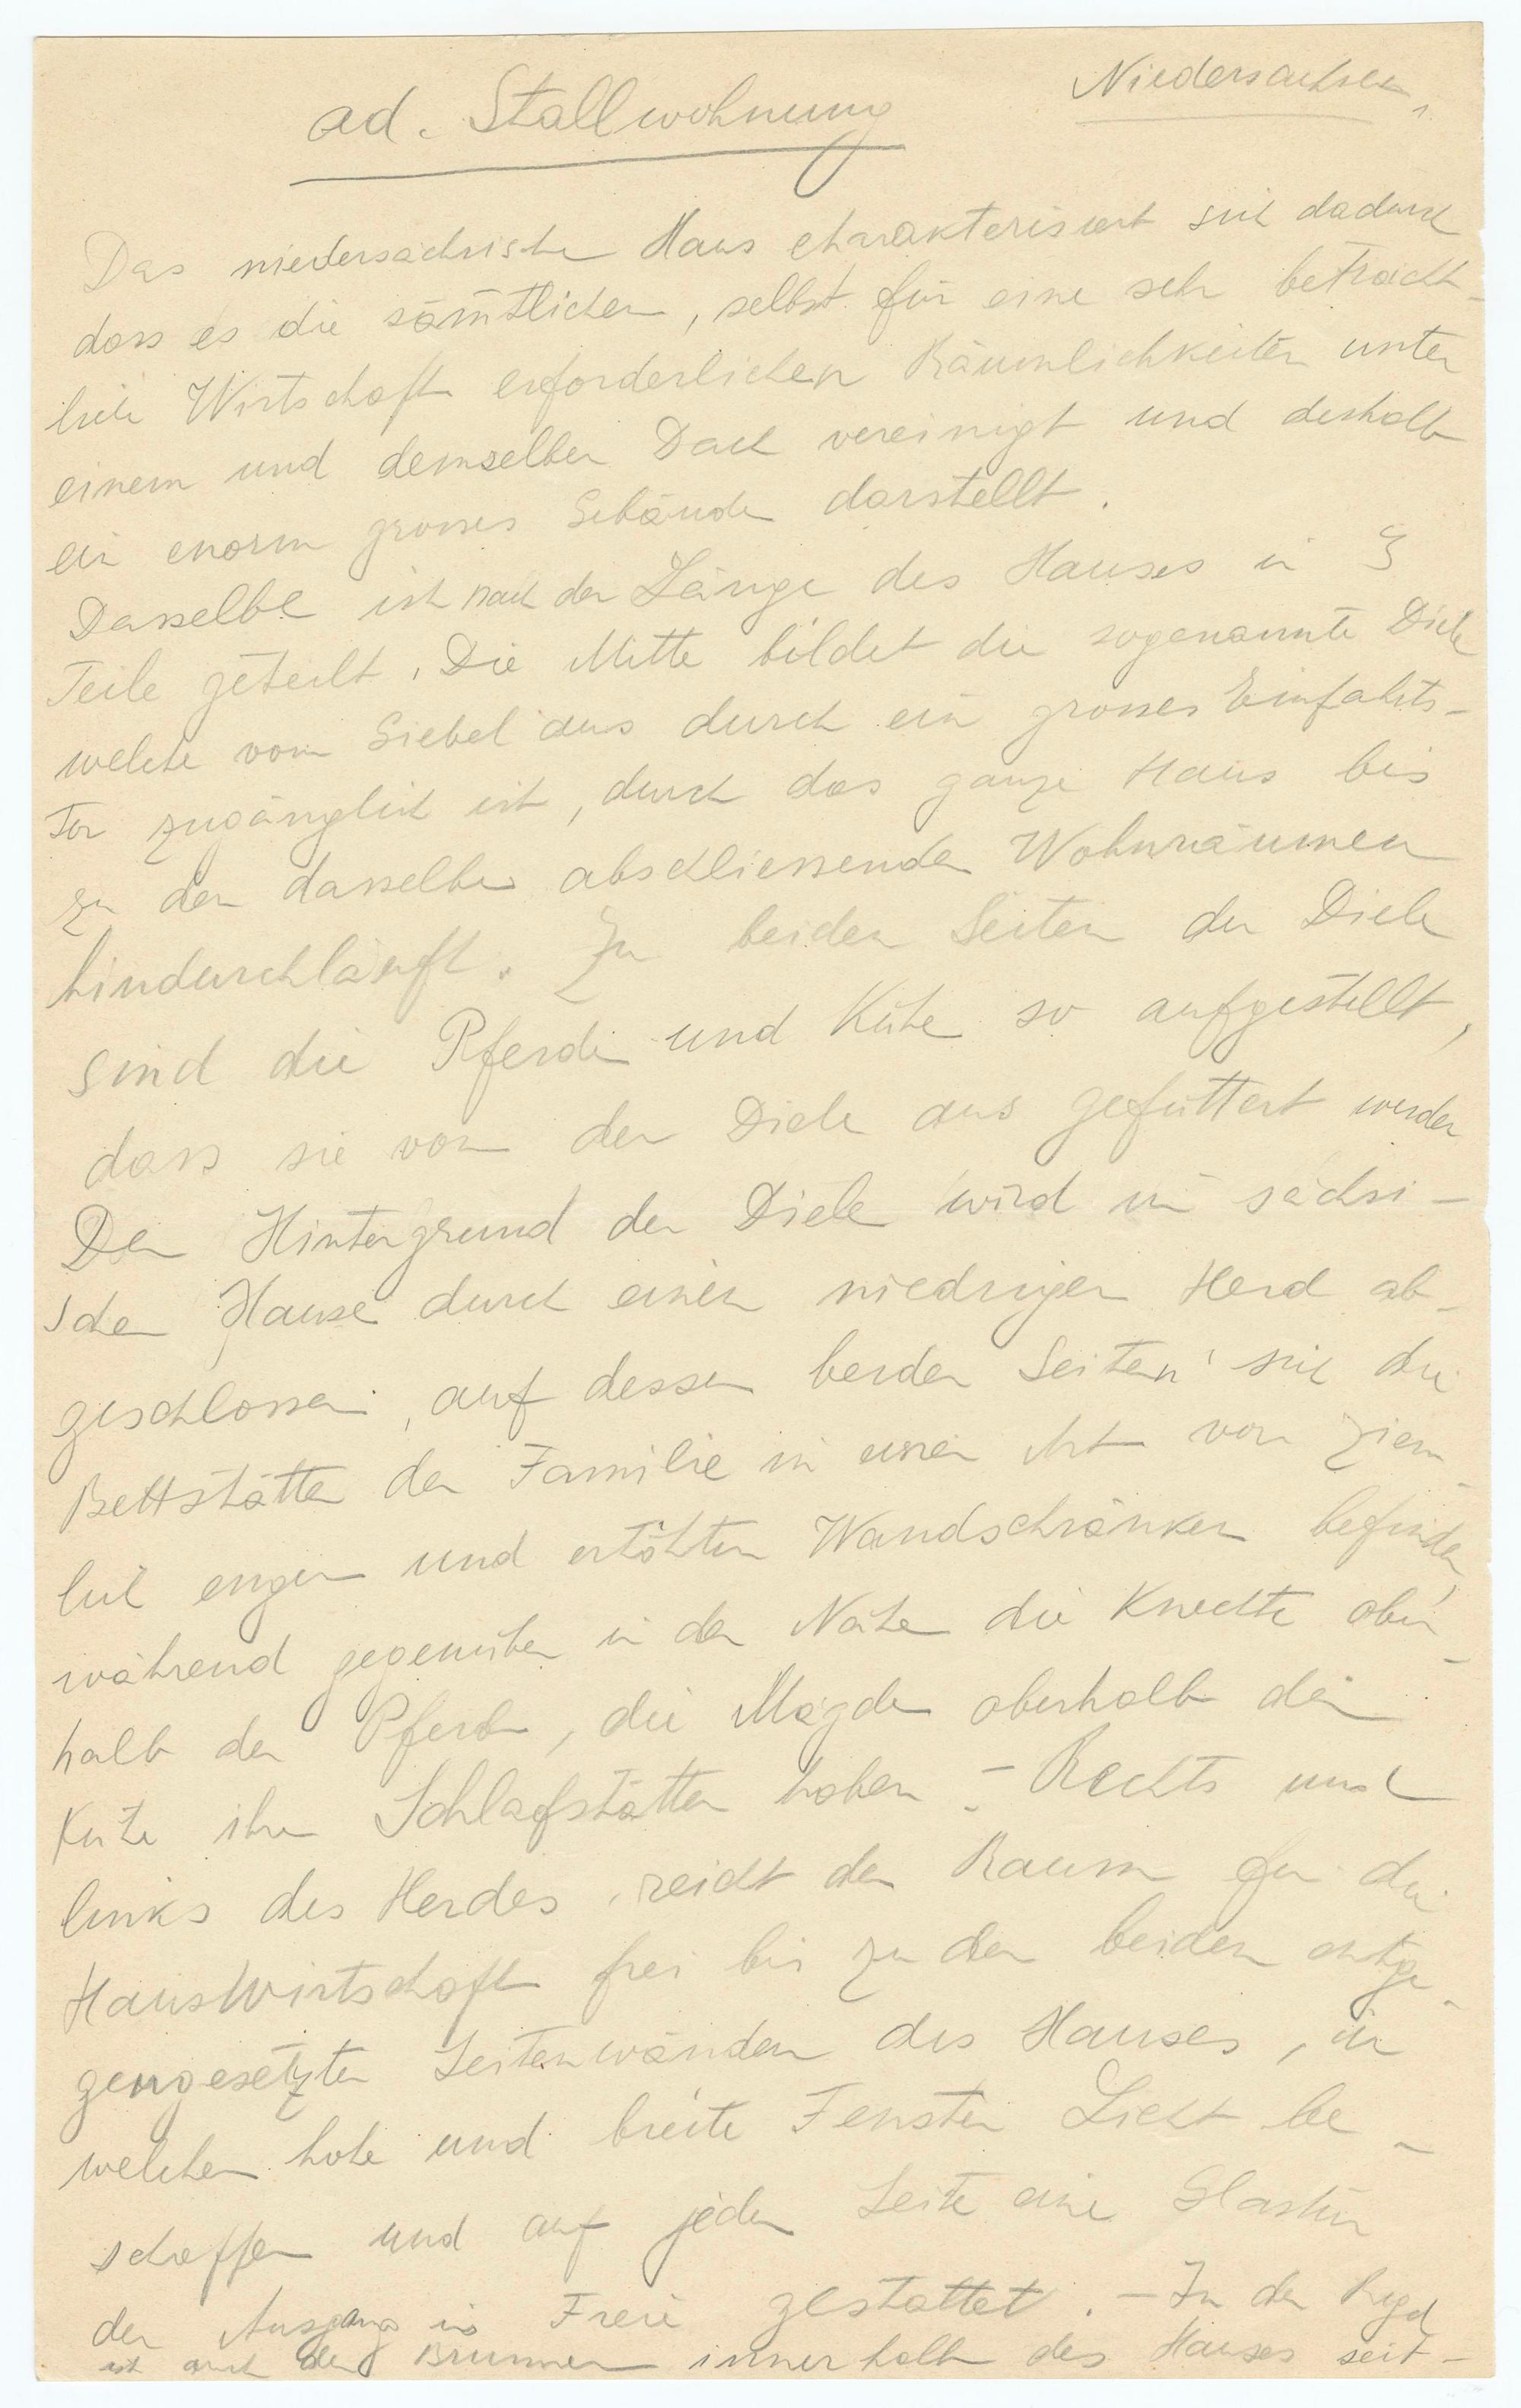 Niedersachsen,
ad. Stallwohnung
Das niedersächsische Haus charakterisiert sich dadurch
dass es die sämtlichen, selbst für eine sehr beträcht-
liche Wirtschaft erforderlichen Räumlichkeiten unter
einem und demselben Dach vereinigt und deshalb
ein enorm grosses Gebäude darstellt.
Dasselbe ist nach der Länge des Hauses in 3
Teile geteilt. Die Mitte bildet die sogenannte Diele
welche vom Giebel aus durch ein grosses Einfahrts-
Tor zugänglich ist, durch das ganze Haus bis
zu den dasselbe abschliessenden Wohnräumen
hindurchläuft. Zu beiden Seiten der Diele
sind die Pferde und Kühe so aufgestellt,
dass sie von der Diele aus gefüttert werden
Der Hintergrund der Diele wird im sächsi-
schen Hause durch einen niedrigen Herd ab-
geschlossen, auf dessen beiden Seiten sich die
Bettstätten der Familie in einer Art von ziem-
lich engen und erhöhten Wandschränken befinden,
während gegenüber in der Nähe die Knechte ober-
halb der Pferde, die Mägde oberhalb der
Kühe ihre Schlafstätten haben. - Rechts und
links des Herdes reicht der Raum für die
Hauswirtschaft frei bis zu den beiden entge-
gengesetzten Seitenwänden des Hauses, in
welchen hohe und breite Fenster Licht be-
schaffen und auf jeder Seite eine Glastür
den Ausgang ins Freie gestattet. - In der Regel
ist auch der Brunnen innerhalb des Hauses seit-